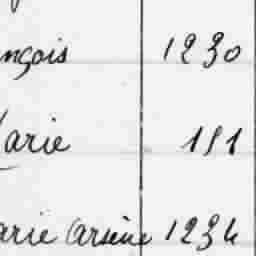 nçois 1230
Marie 151
arie Arsène 1234